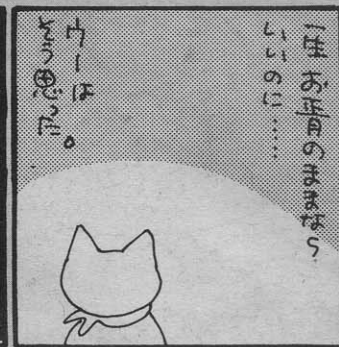 一生 のままなら
いいのに……
ウーは
そう思った。